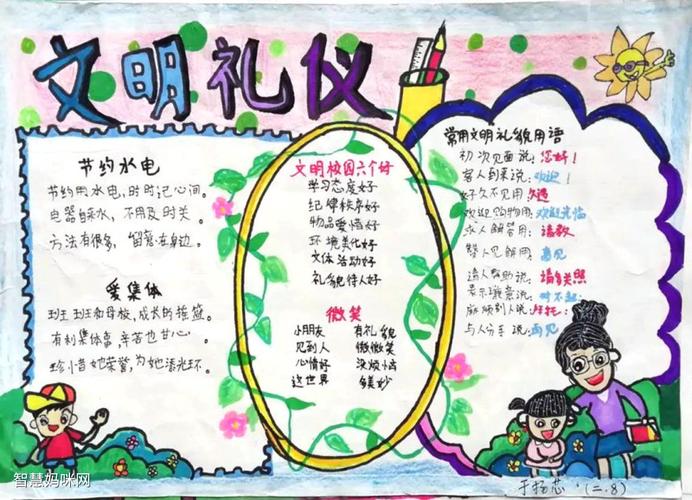 文明礼仪
节约水电
节约用水电,时时记心间。
电器自来水,不用及时关。
方法有很多,留意在身边。
爱集体
班级和母校,成长的摇篮。
有利集体事,辛苦也甘心。
珍惜她荣誉,为她添光环。
文明校园六个好
学习态度好
纪律秩序好
物品爱惜好
环境美化好
文体活动好
礼貌待人好
微笑
小朋友 有礼貌
见到人 微微笑
心情好 没烦恼
这世界 多美妙
常用文明礼貌用语
初次见面说:您好!
客人到来说:欢迎!
好久不见用久违
欢迎购物用:欢迎光临
求人解答用:请教
请人帮助说:请多关照
表示歉意说:对不起
麻烦别人说:拜托
与人分手说:再见
于扬芯·(二.8)
智慧妈咪网